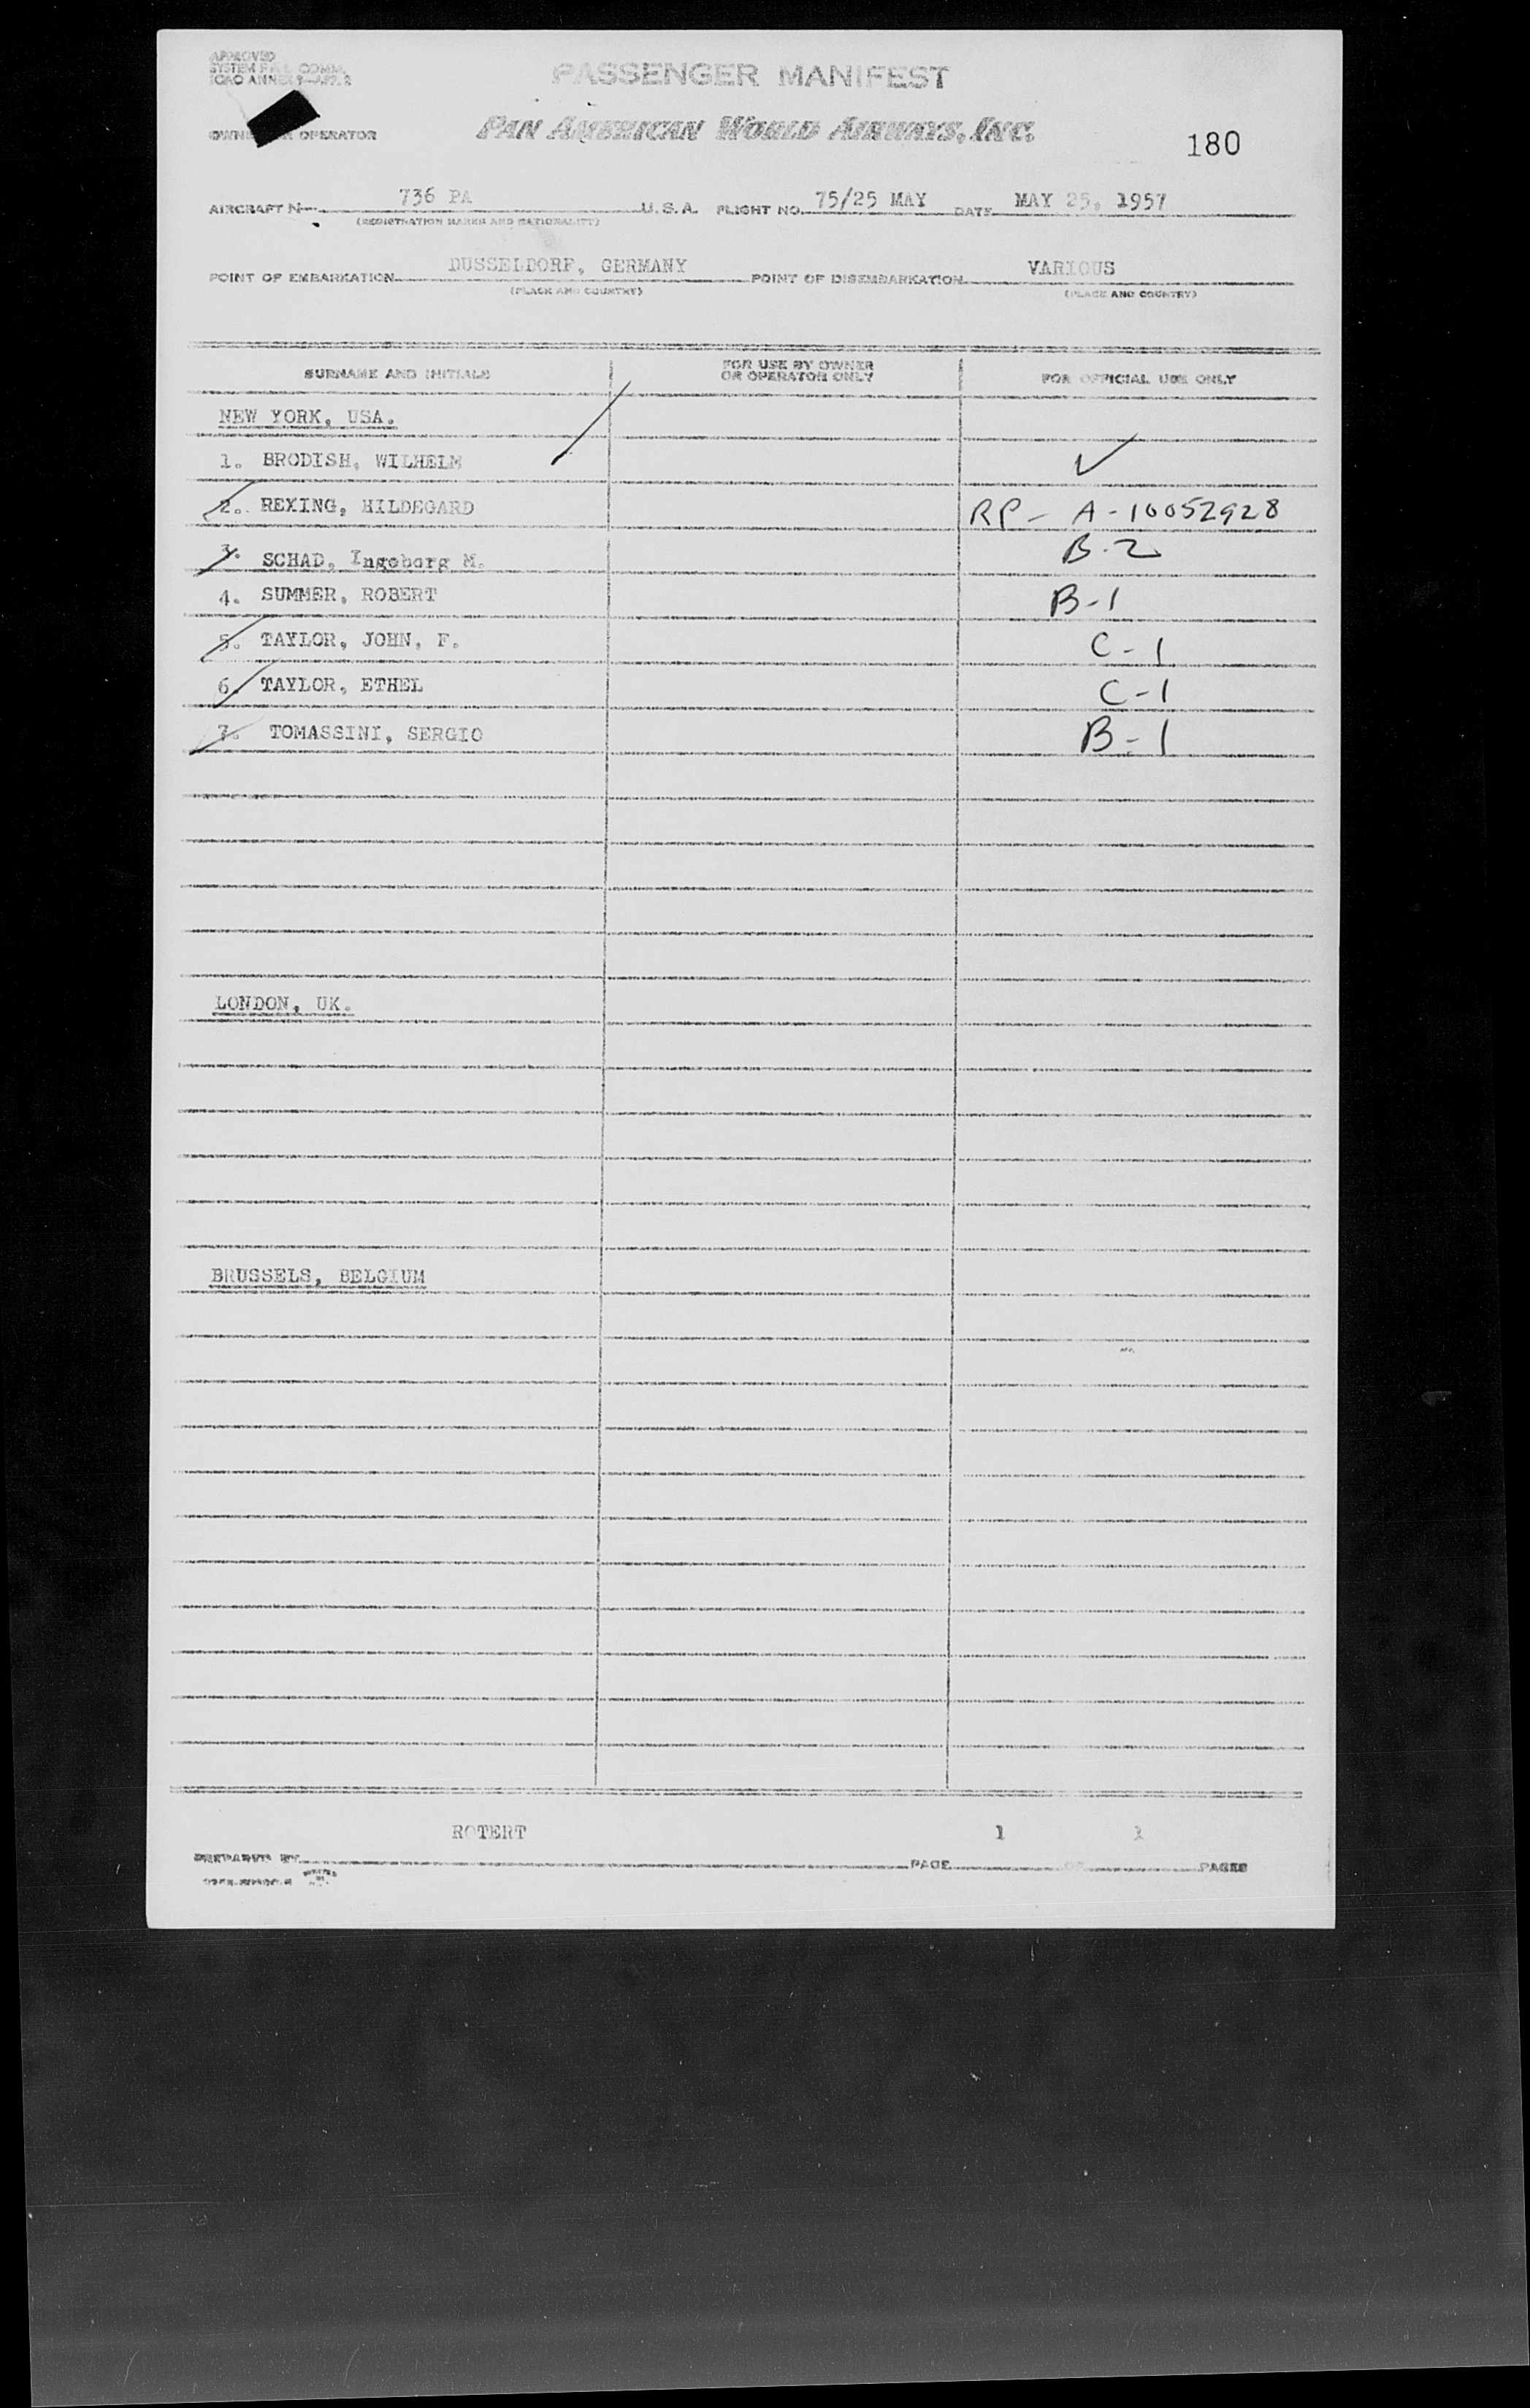 APPROVED
SYSTEM FAL COMM.
ICAO ANNEX 9—APP. 2
PASSENGER MANIFEST
OWNER OR OPERATOR
PAN AMERICAN WORLD AIRWAYS, INC.
180
AIRCRAFT N— 736 PA U. S. A. FLIGHT NO. 75/25 MAY DATE MAY 25, 1957
(REGISTRATION MARKS AND NATIONALITY)
POINT OF EMBARKATION DUSSELDORF, GERMANY POINT OF DISEMBARKATION VARIOUS
(PLACE AND COUNTRY) (PLACE AND COUNTRY)
SURNAME AND INITIALS FOR USE BY OWNER OR OPERATOR ONLY FOR OFFICIAL USE ONLY
NEW YORK, USA.
1. BRODISH, WILHELM ✓
2. REXING, HILDEGARD RP - A - 10052928
3. SCHAD, Ingeborg M. B-2
4. SUMMER, ROBERT B-1
5. TAYLOR, JOHN, F. C-1
6. TAYLOR, ETHEL C-1
7. TOMASSINI, SERGIO B-1
LONDON, UK.
BRUSSELS, BELGIUM
ROTERT 1 1
PREPARED BY PAGE OF PAGES